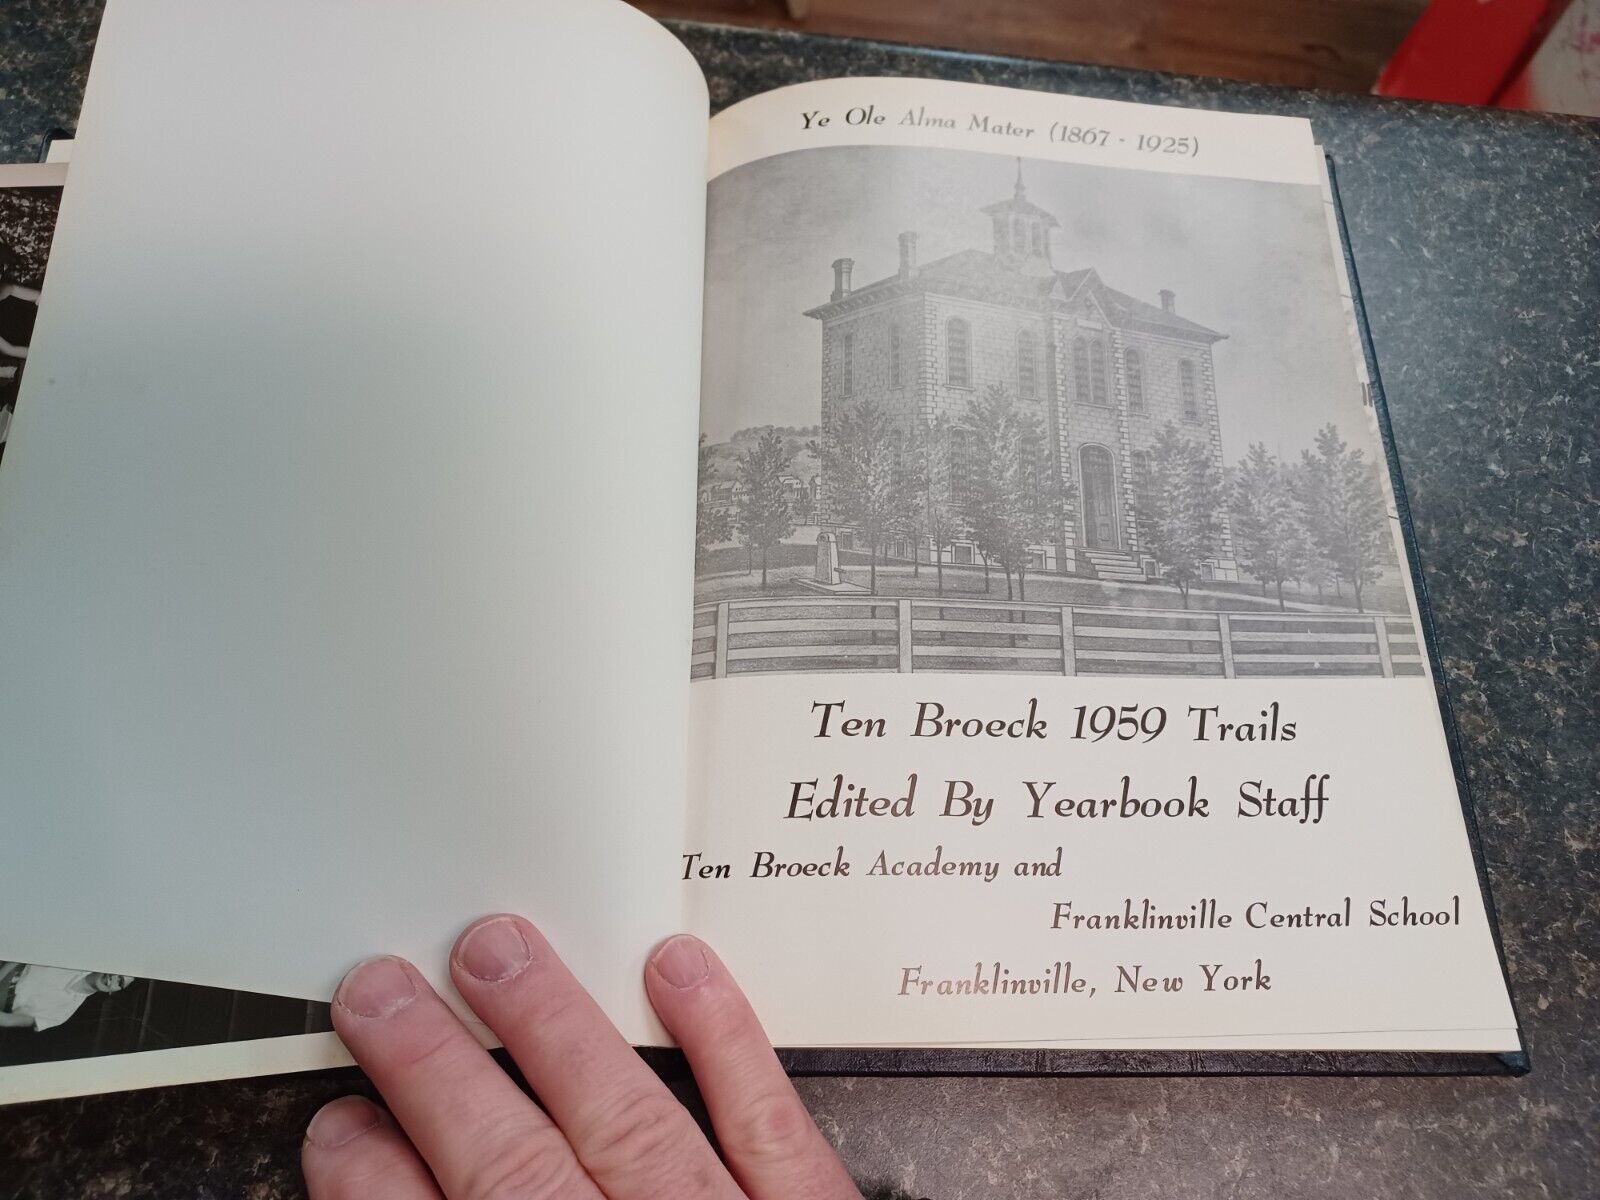 Ye Ole Alma Mater (1867 - 1925)
Ten Broeck 1959 Trails
Edited By Yearbook Staff
Ten Broeck Academy and
Franklinville Central School
Franklinville, New York